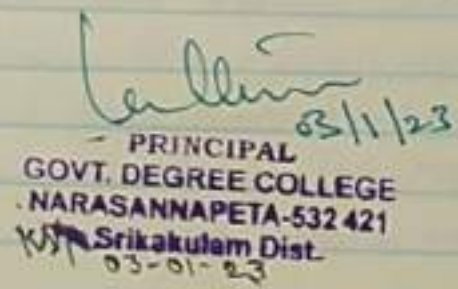 03/1/23
PRINCIPAL
GOVT. DEGREE COLLEGE
NARASANNAPETA-532 421
Srikakulam Dist.
03-01-23